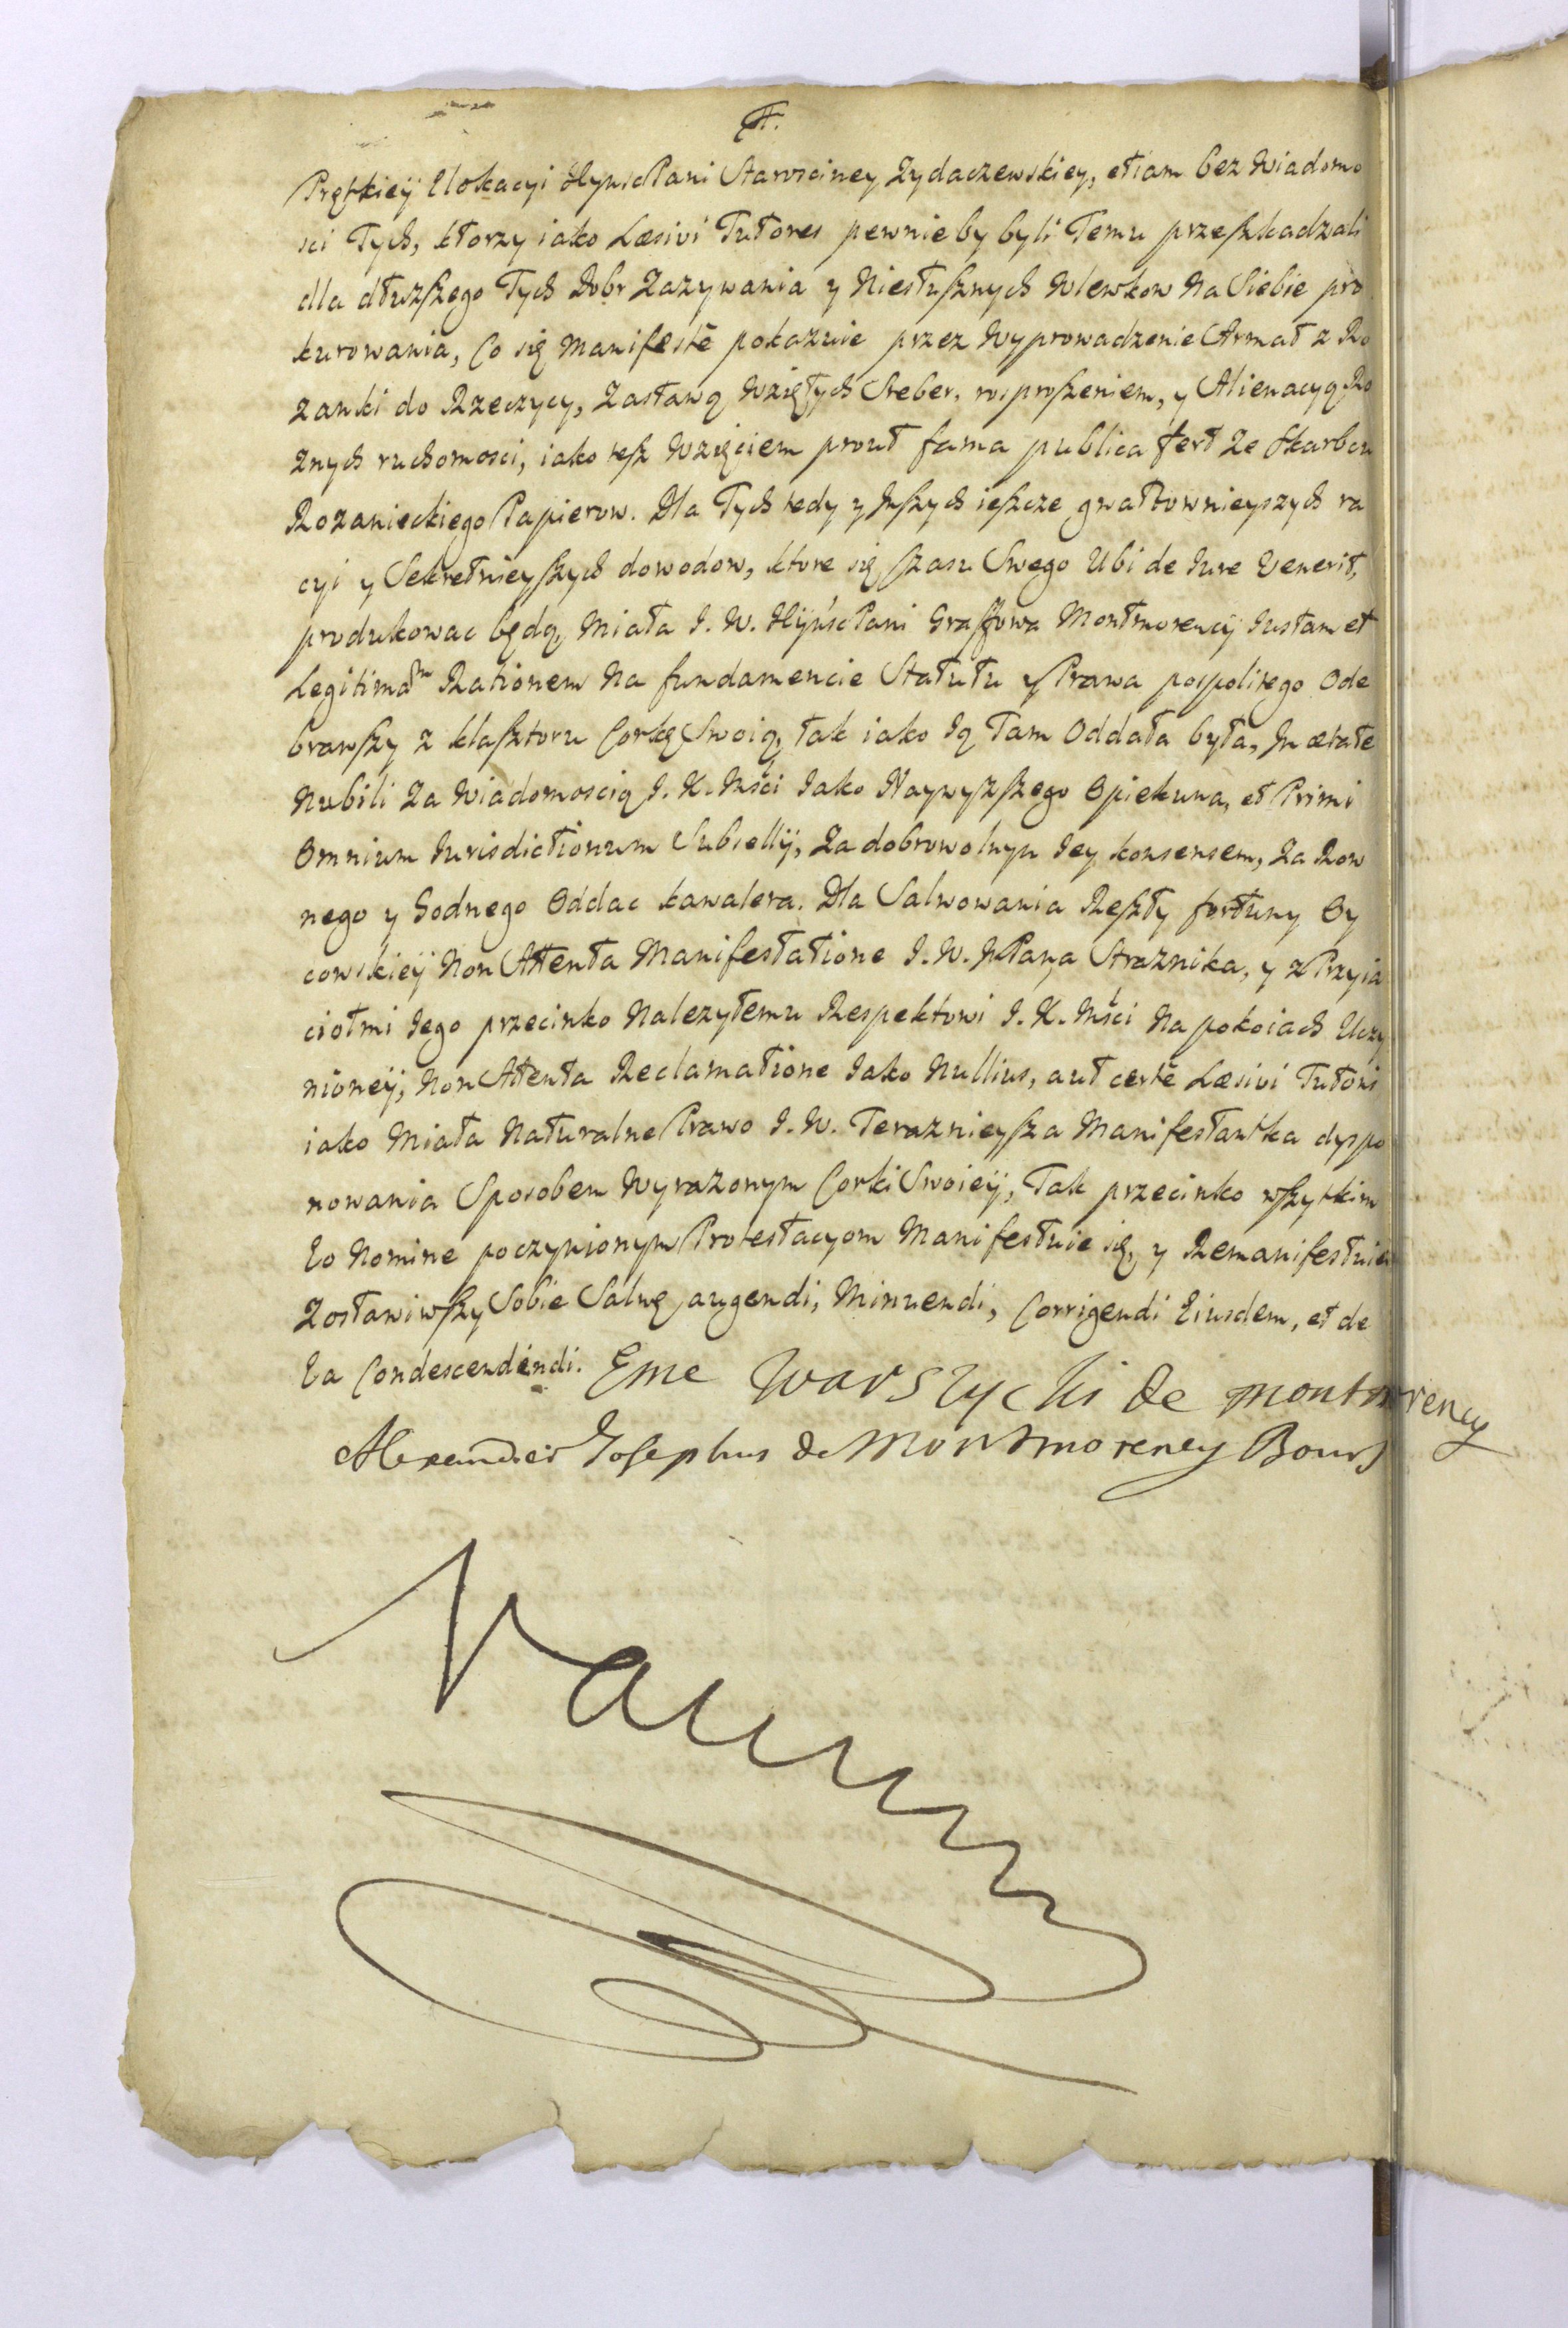 Prętkieÿ Elokacyi Jeymsc Pani Starosciney Zydaczewskiey, etiam bez Wiadomo
sci Tych, ktorzy iako Læsivi Tutores pewnie by byli Temu przeszkadzali
dla dłuzszego Tych Dobr Zazywania y Niesłusznych Wlewkow Na Siebie pro
kurowania, Co się Manifestè pokazuie przez Wyprowadzenie Armat z Ro
zanki do Rzeczycy, Zastawą Wziętych Sreber, rosproszeniem, y Alienacyą Ro
znych ruchomosci, iako tesz Wzięciem prout fama publica fert Ze Skarbcu
Rozanieckiego Papierow. Dla Tych tedy y Inszych ieszcze gwałtownieyszych ra
cyi y Sekretnieyszych dowodow, ktore się szasu Swego Ubi de Iure Venerit,
produkowac będą, Miała J. W. Pani Graffowa Montmorencÿ Iustam et
Legitimam Rationem Na fundamencie Statutu y Prawa pospolitego Ode
brawszy z klasztoru Corkę Swoią, tak iako Ią Tam Oddała była, In ætate
Nubili Za Wiadomoscią J. K. Msci Iako Naywyzszego Opiekuna, et Primi
Omnium Iurisdictionum Subsellÿ, Za dobrowolnym Iey konsensem, Za Row
nego y Godnego Oddac kawalera. Dla Salwowania Reszty fortuny Oy
cowskieÿ Non Attenta Manifestatione J. W. JPana Straznika, y z Przyia
ciołmi Iego przeciwko Nalezytemu Respektowi J. K. Msci Na pokoiach Uczy
nioneÿ, Non Attenta Reclamatione Iako Nullius, aut certè Læsivi Tutoris
iako Miała Naturalne Prawo J. W. Teraznieysza Manifestantka dyspo
nowania Sposobem Wyrazonym Corki Swoieÿ, Tak przeciwko wszytkim
Eo Nomine poczynionym Protestacyom Manifestuie się, y Remanifestuie
Zostawiwszy Sobie Salwę augendi, Minuendi, Corrigendi Eiusdem, et de
Ea Condescendendi. Eme Warszycki de montmorency
Alexander Josephus de Montmorency Bours